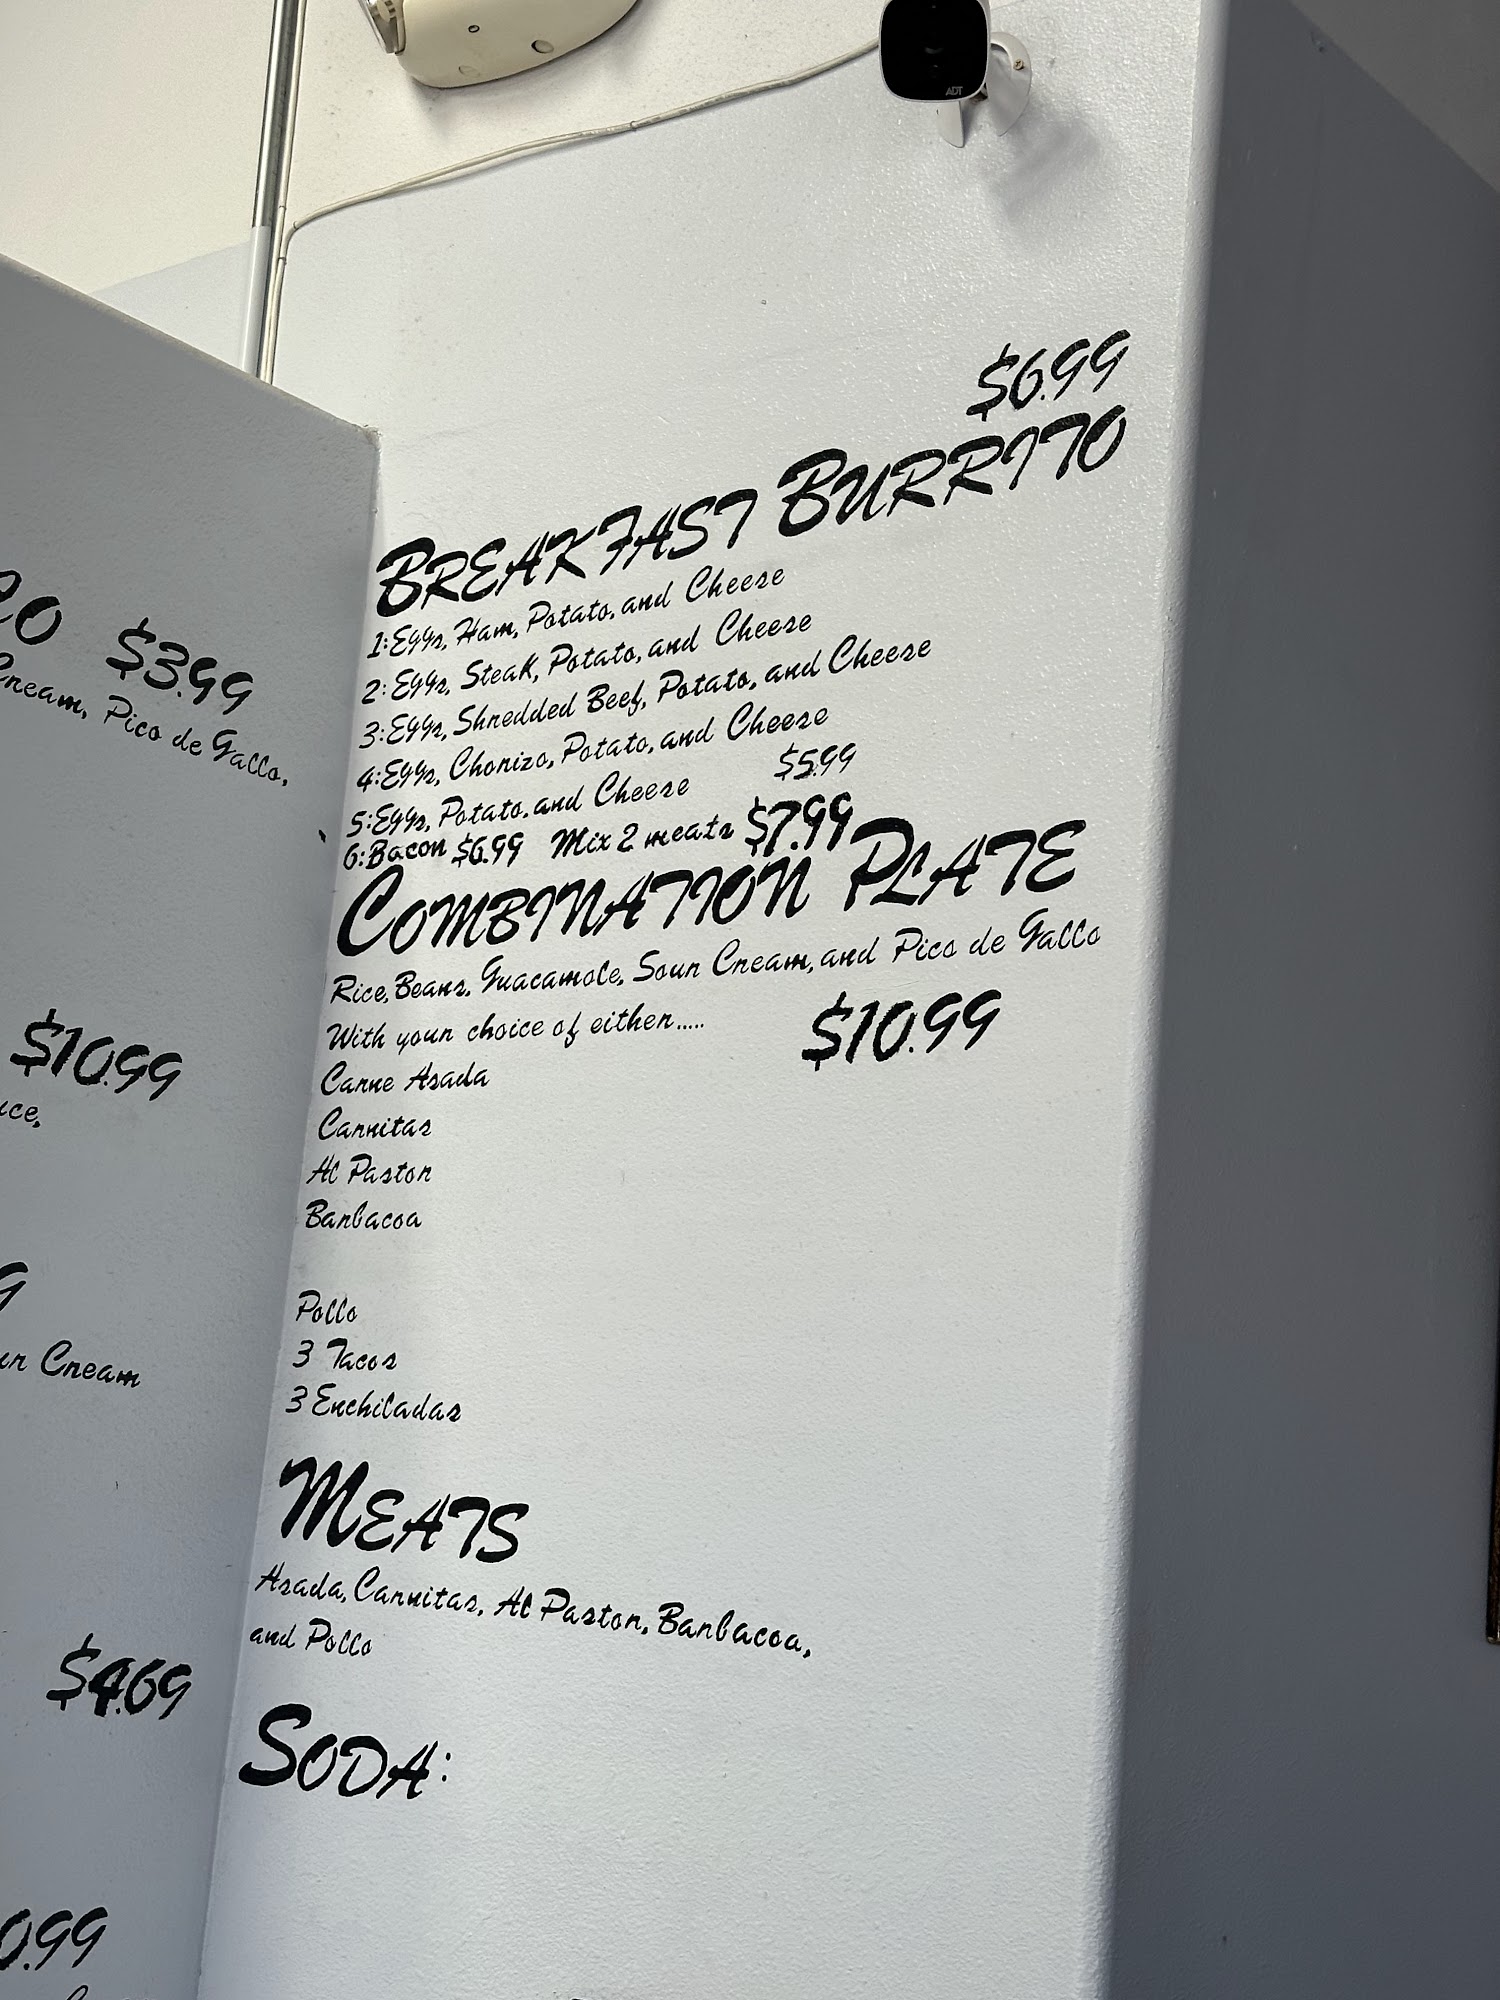 ADT
$6.99
BREAKFAST BURRITO
1:Eggs, Ham, Potato, and Cheese
2:Eggs, Steak, Potato, and Cheese
3:Eggs, Shredded Beef, Potato, and Cheese
4:Eggs, Chorizo, Potato, and Cheese
5:Eggs, Potato, and Cheese $5.99
6:Bacon $6.99 Mix 2 meats $7.99
COMBINATION PLATE
Rice, Beans, Guacamole, Sour Cream, and Pico de Gallo
With your choice of either..... $10.99
Carne Asada
Carnitas
Al Pastor
Barbacoa
Pollo
3 Tacos
3 Enchiladas
MEATS
Asada, Carnitas, Al Pastor, Barbacoa,
and Pollo
SODA:
$3.99
Cream, Pico de Gallo,
$10.99
Cream
$4.69
0.99